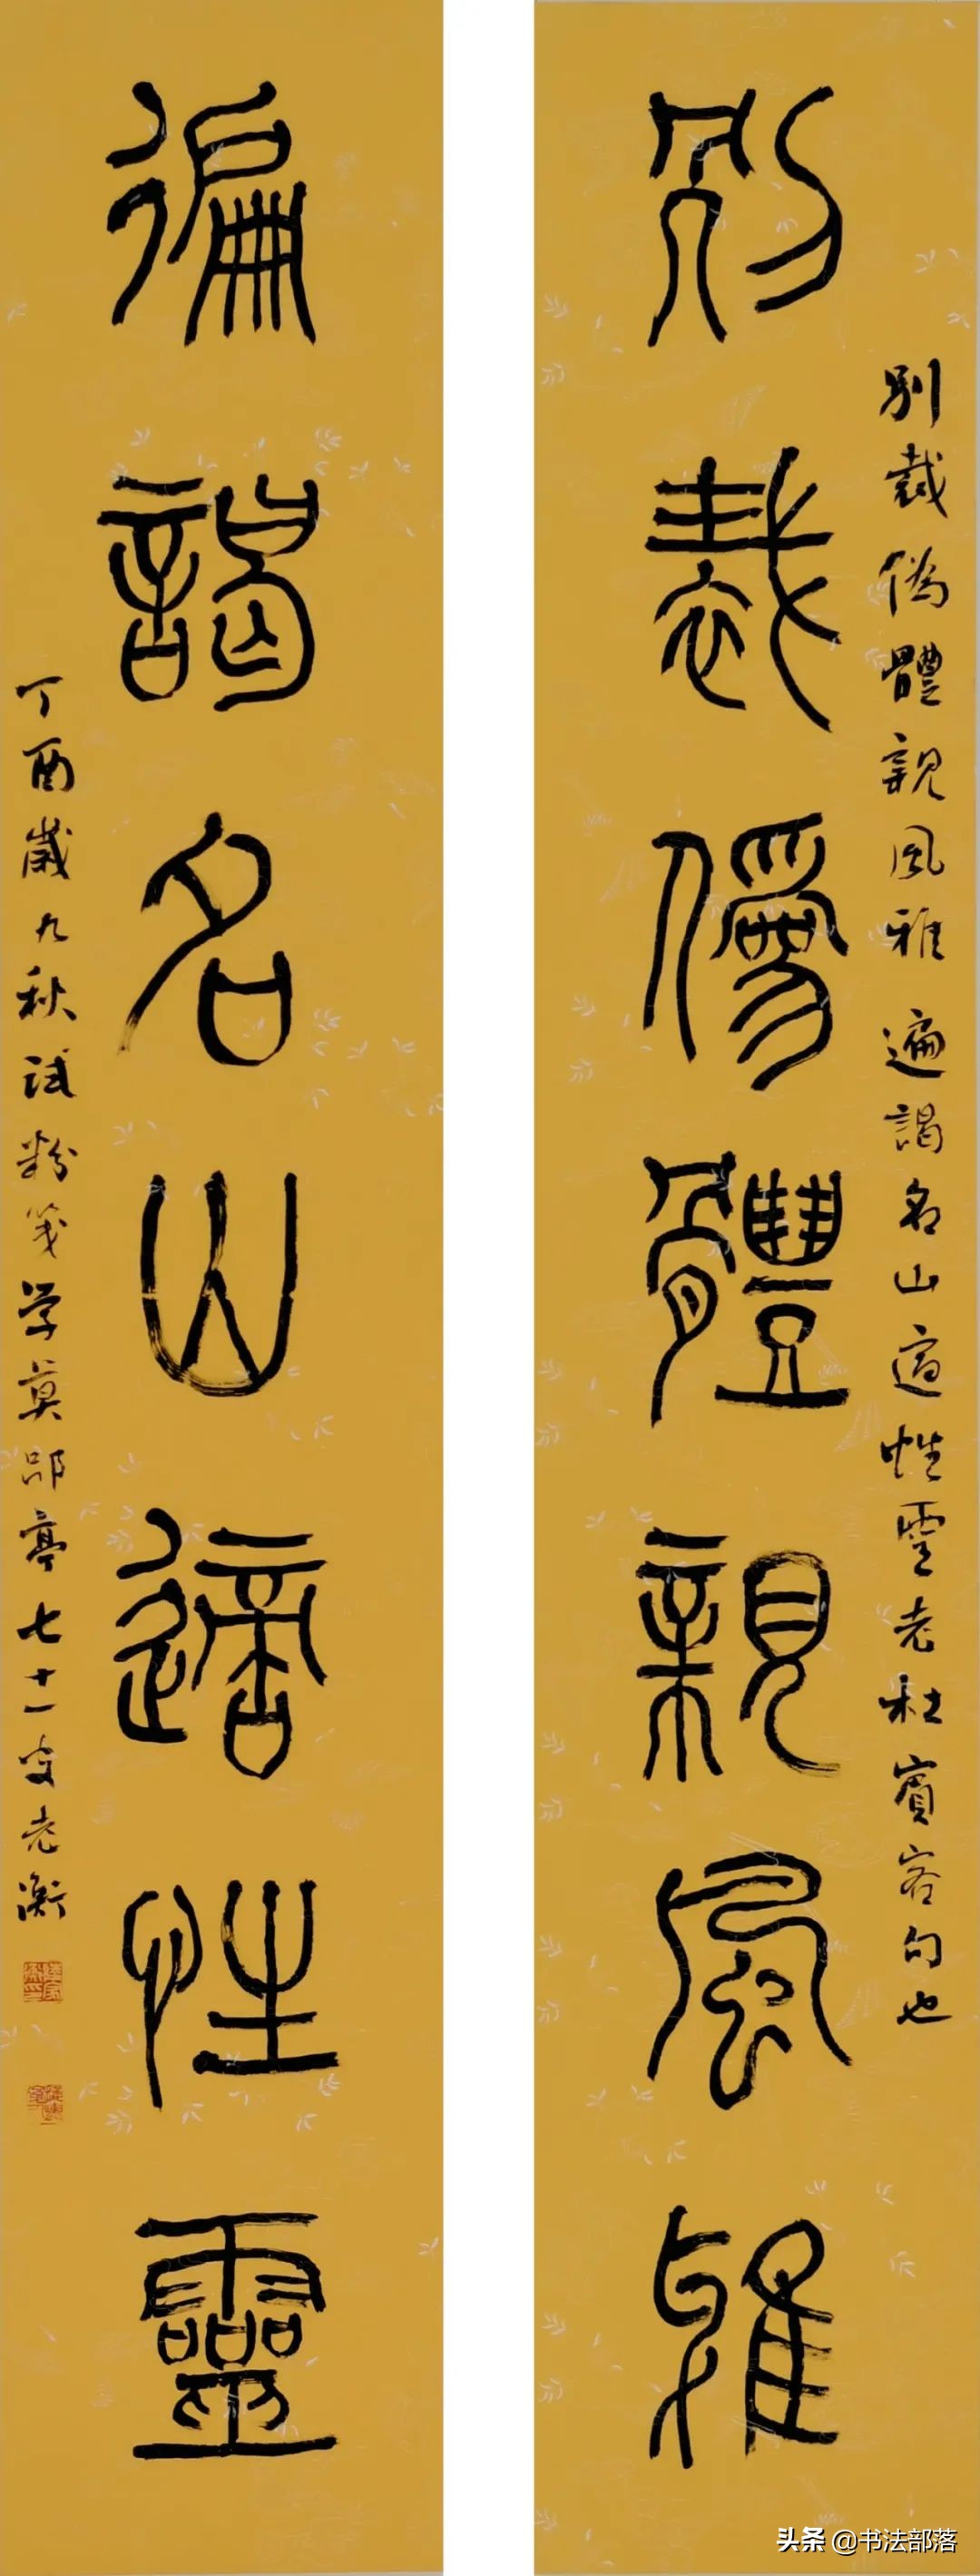 別裁偽體親風雅 遍謁名山適性霊 老杜賓客句也
別裁偽體親風雅
徧謁名山適性靈
丁酉歲九秋試粉箋学莫郘亭七十一叟老衡
头条 @书法部落